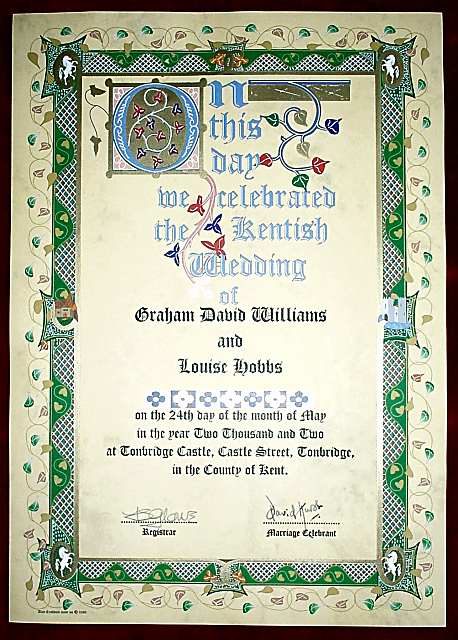 On
this
day
we celebrated
the Kentish
Wedding
of
Graham David Williams
and
Louise Hobbs
on the 24th day of the month of May
in the year Two Thousand and Two
at Tonbridge Castle, Castle Street, Tonbridge,
in the County of Kent.
Registrar Marriage Celebrant